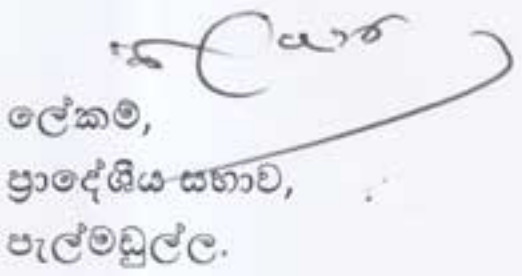 ලේකම්,
ප්‍රාදේශීය සභාව,
පැල්මඩුල්ල.